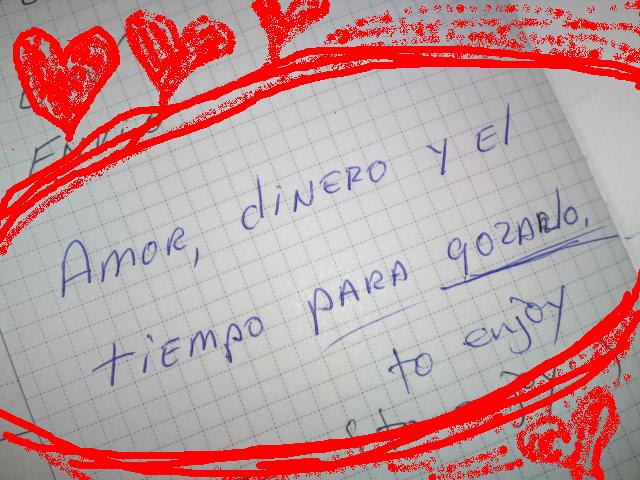 Amor, dinero y el
tiempo para gozarlo.
to enjoy